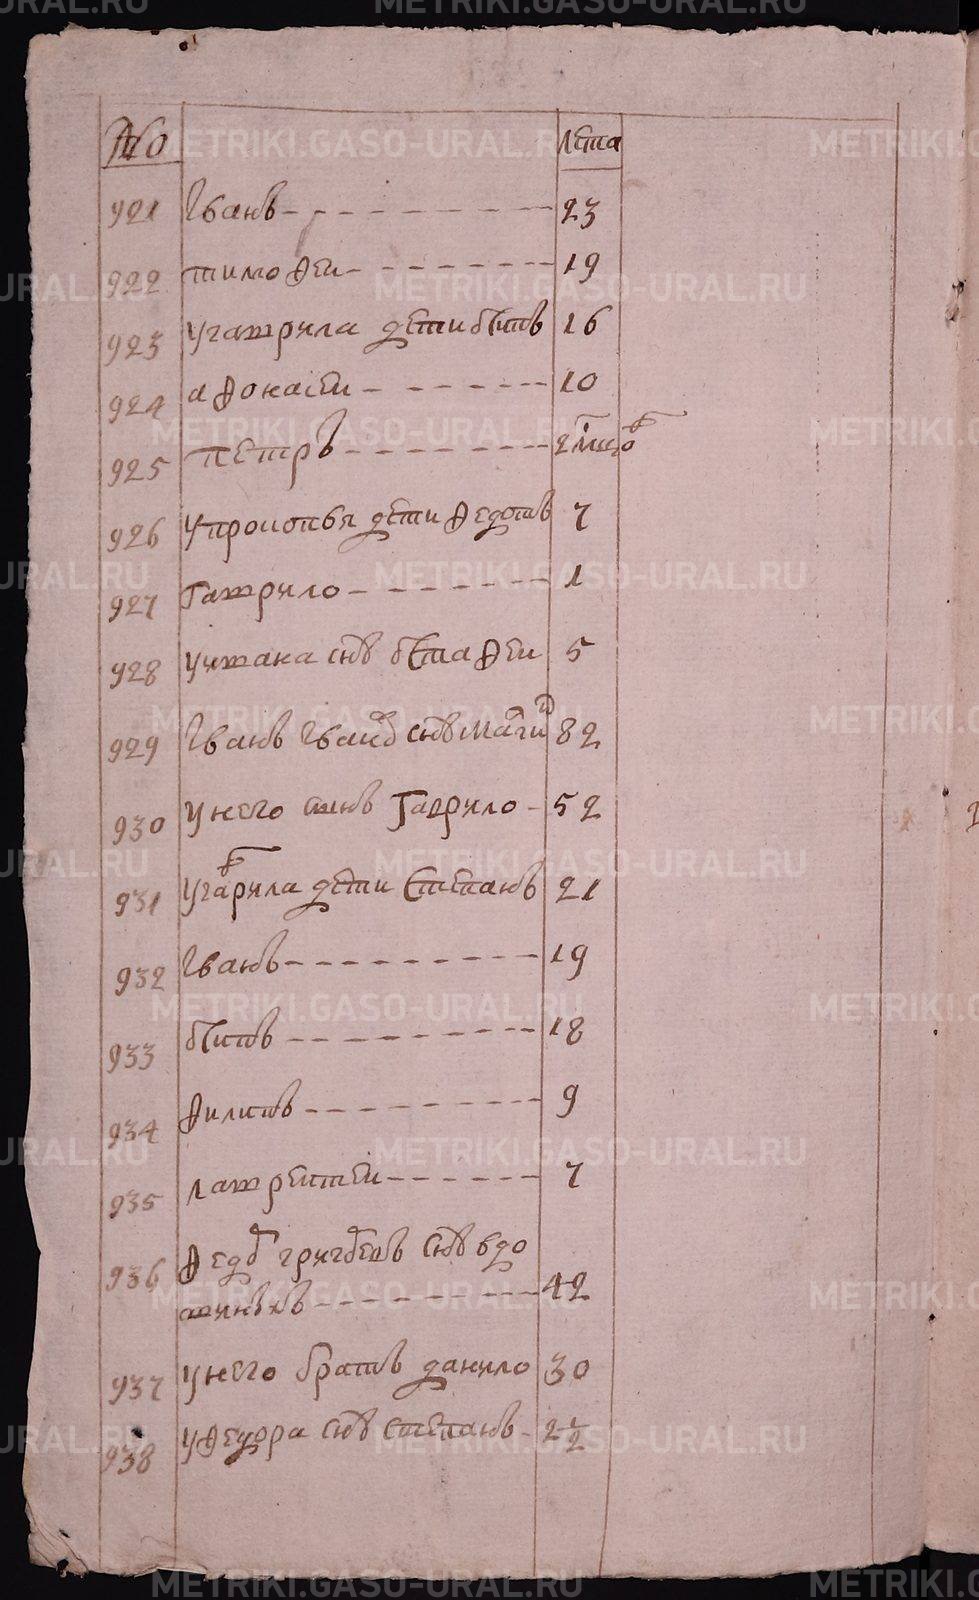 № лета
921 Иванъ 23
922 тимофеи 19
923 Угаврила дети 16
924 афонасеи 10
925 Петръ 2 мцо
926 Упрокопья дети федотъ 7
927 Гаврило 1
928 снъ 5
929 Иванъ Ивановъ снъ 82
930 Унего снъ Гаврило 52
931 Угаврила дети Степанъ 21
932 Иванъ 19
933 18
934 филипъ 9
935 лаврентеи 7
936 федоръ григорьевъ снъ вдо
42
937 Унего братъ данило 30
938 Уфедора снъ степанъ 2 1/2
METRIKI.GASO-URAL.RU